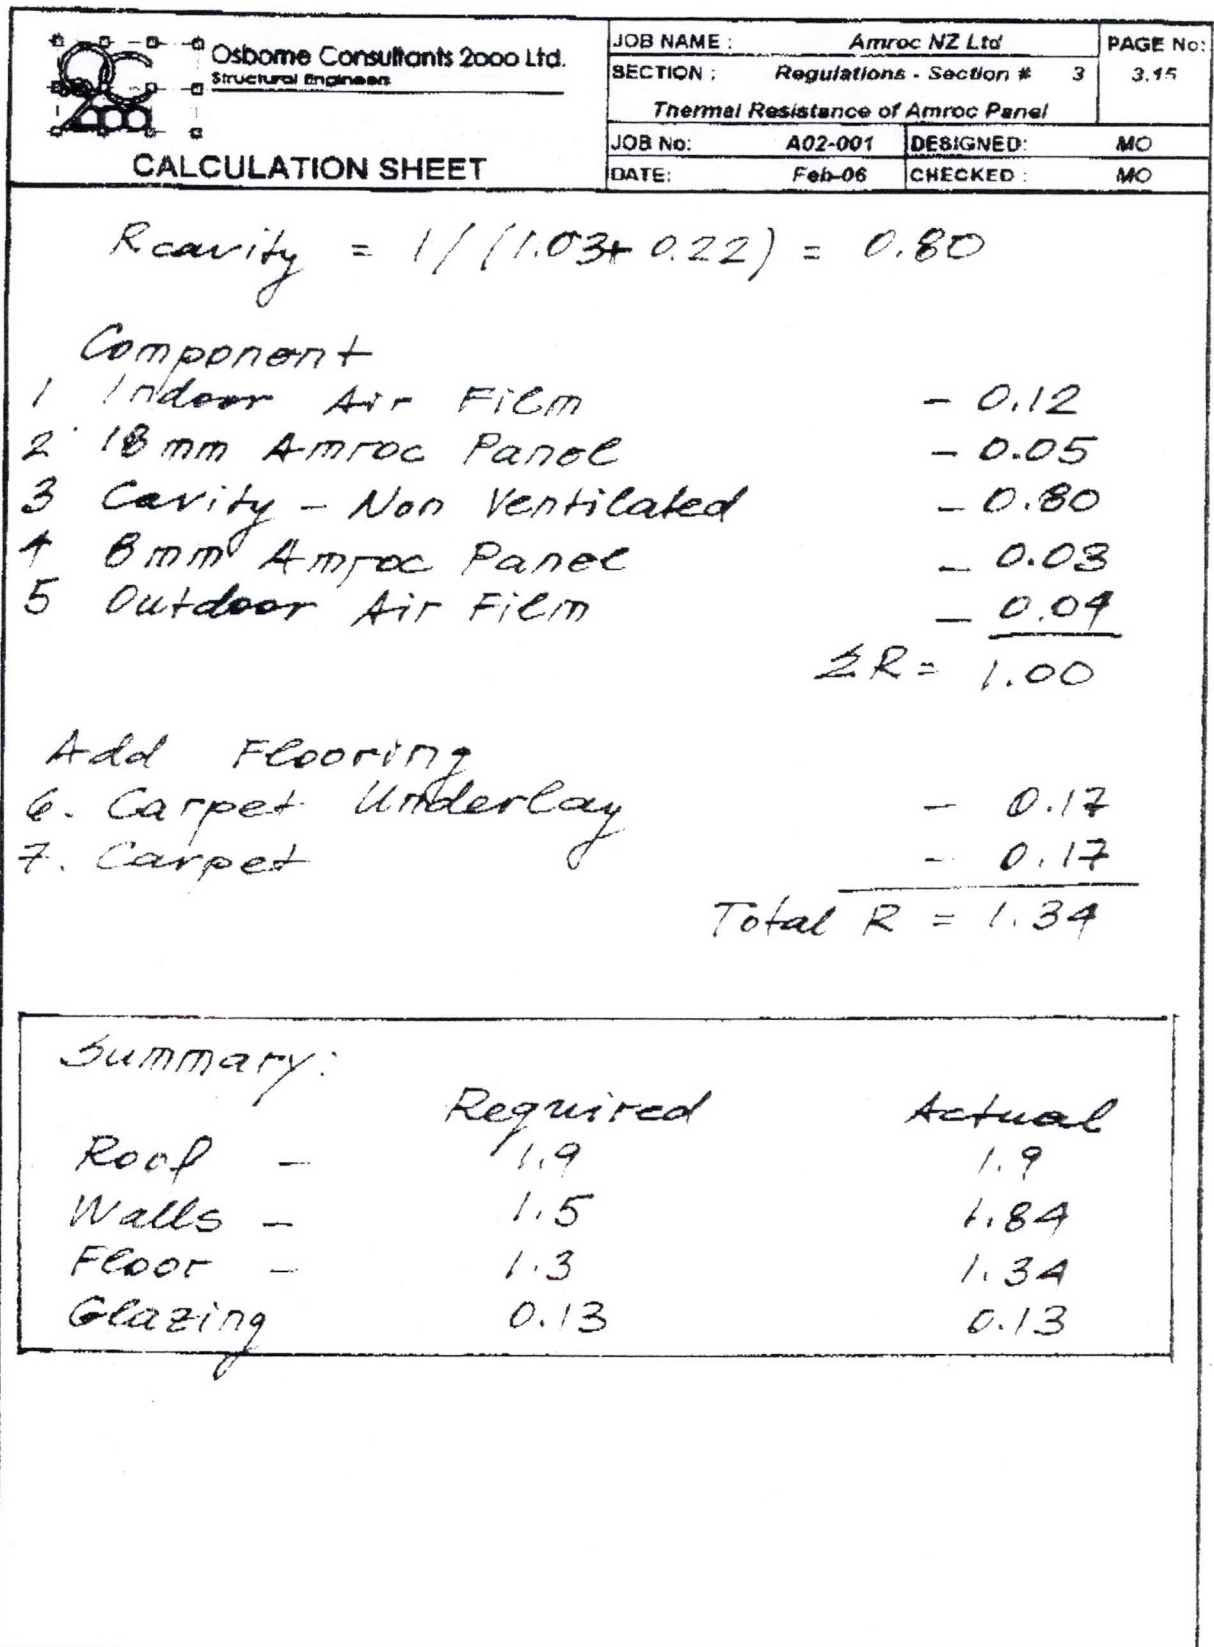 Osborne Consultants 2000 Ltd.
Structural Engineers
CALCULATION SHEET
JOB NAME : Amroc NZ Ltd
PAGE No:
SECTION : Regulations - Section # 3
3.15
Thermal Resistance of Amroc Panel
JOB No: A02-001 DESIGNED: MO
DATE: Feb-06 CHECKED : MO
Rcavity = 1/(1.03+ 0.22) = 0.80
Component
1 Indoor Air Film - 0.12
2 18mm Amroc Panel - 0.05
3 Cavity - Non Ventilated - 0.80
4 8mm Amroc Panel - 0.03
5 Outdoor Air Film - 0.04
ΣR = 1.00
Add Flooring
6. Carpet Underlay - 0.17
7. Carpet - 0.17
Total R = 1.34
Summary:
Required Actual
Roof - 1.9 1.9
Walls - 1.5 1.84
Floor - 1.3 1.34
Glazing 0.13 0.13